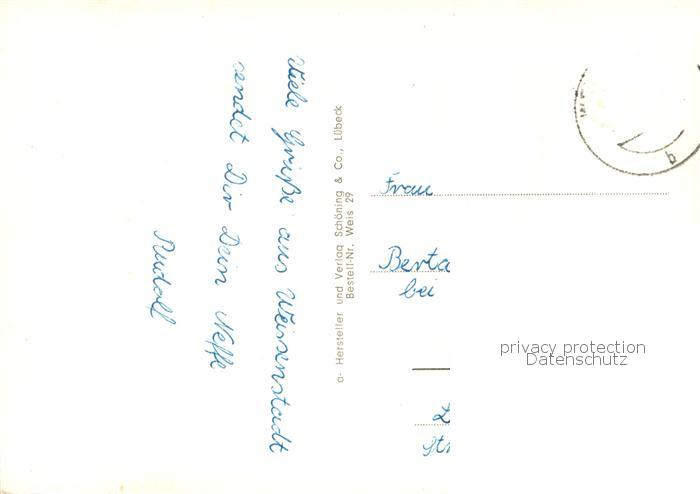 Viele Grüße aus Weissenstadt
sendet Dir Dein Neffe
Rudolf
a- Hersteller und Verlag Schöning & Co., Lübeck
Bestell-Nr. Weis 29
Frau
Berta
bei
privacy protection
Datenschutz